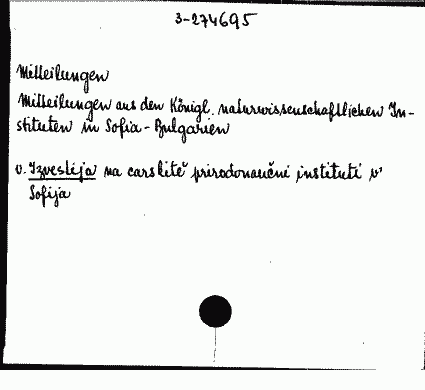 3-274695
Mitteilungen
Mitteilungen aus den Königl. naturwissenschaftlichen In-
stituten in Sofia-Bulgarien
v. Izvestija na carskitě prirodonaučni instituti v
Sofija